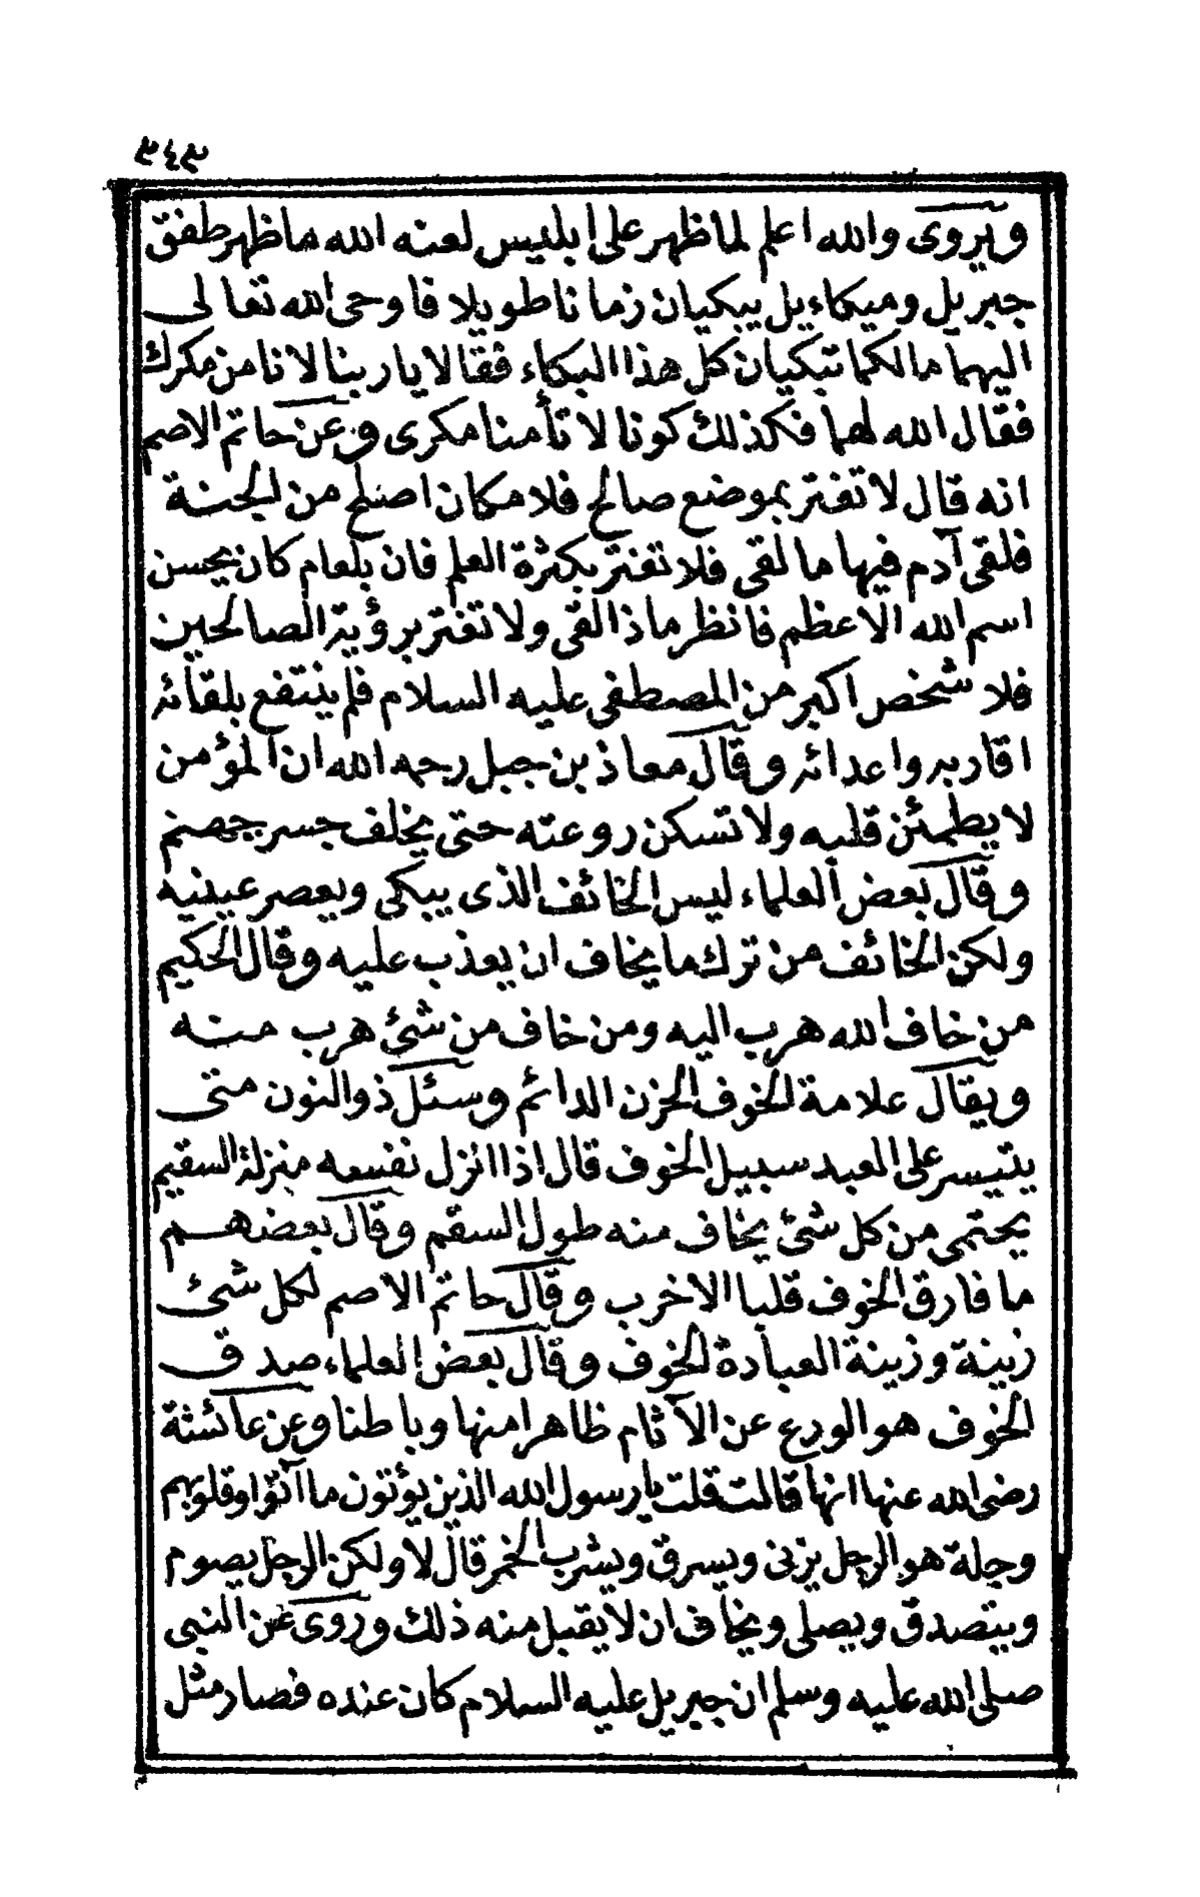 ٣٤٣
ويروى والله اعلم لما ظهر على ابليس لعنه الله ما ظهر طفق
جبريل وميكاءيل يبكيان زمانا طويلا فاوحى الله تعالى
اليهما مالكما تبكيان كل هذا البكاء فقالا يا ربنا لانا من مكرك
فقال الله لهما فكذلك كونا لا تأمنا مكرى وعن حاتم الاصم
انه قال لا تغتر بموضع صالح فلا مكان اصلح من الجنة
فلقى آدم فيها ما لقى فلا تغتر بكثرة العلم فان بلعام كان يحسن
اسم الله الاعظم فانظر ماذا لقى ولا تغتر برؤية الصالحين
فلا شخص اكبر من المصطفى عليه السلام فلم ينتفع بلقائه
اقاربه واعدائه وقال معاذ بن جبل رحمه الله ان المؤمن
لا يطمئن قلبه ولا تسكن روعته حتى يخلف جسر جهنم
وقال بعض العلماء ليس الخائف الذى يبكى ويعصر عينيه
ولكن الخائف من ترك ما يخاف ان يعذب عليه وقال الحكيم
من خاف الله هرب اليه ومن خاف من شئ هرب منه
ويقال علامة الخوف الحزن الدائم وسئل ذو النون متى
يتيسر على العبد سبيل الخوف قال اذا انزل نفسه منزلة السقيم
يحتمى من كل شئ يخاف منه طول السقم وقال بعضهم
ما فارق الخوف قلبا الا خرب وقال حاتم الاصم لكل شئ
زينة وزينة العبادة الخوف وقال بعض العلماء صدق
الخوف هو الورع عن الآثام ظاهرا منها وباطنا وعن عائشة
رضى الله عنها انها قالت قلت يا رسول الله الذين يؤتون ما آتوا وقلوبهم
وجلة هو الرجل يزنى ويسرق ويشرب الخمر قال لا ولكن الرجل يصوم
ويتصدق ويصلى ويخاف ان لا يقبل منه ذلك وروى عن النبى
صلى الله عليه وسلم ان جبريل عليه السلام كان عنده فصار مثل